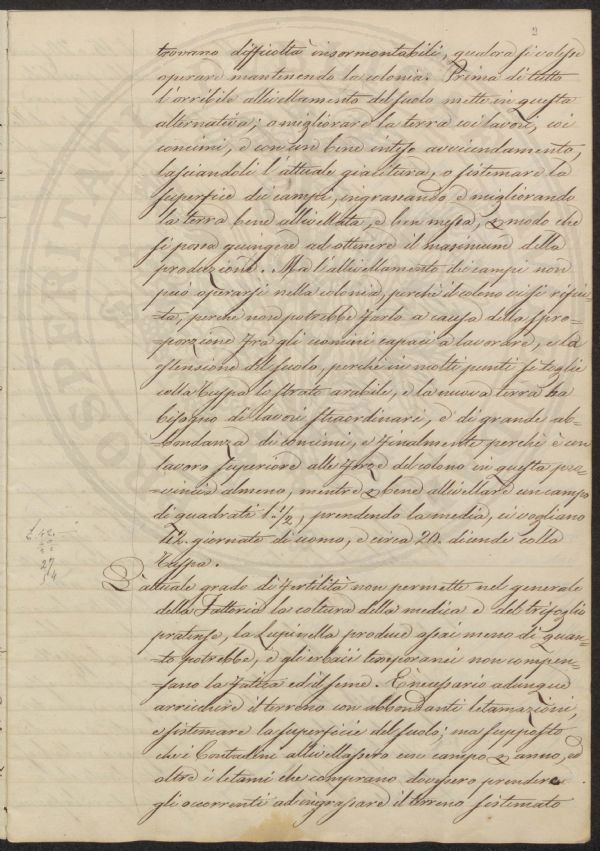 2
trovano difficoltà insormontabili, qualora si volesse
operare mantenendo la colonia. Prima di tutto
l'orribile allivellamento del suolo mette in questa
alternativa; o migliorare la terra coi lavori, coi
concimi, e con un bene inteso avvicendamento,
lasciandoli l'attuale giacitura, o sistemare la
superficie dei campi, ingrassando e migliorando
la terra bene allivellata, e ben messa, modo che
si possa giungere ad ottenere il maximum della
produzione. Ma l'allivellamento dei campi non
può operarsi nella colonia, perchè il colono vi si rifiu-
-ta, perchè non potrebbe farlo a causa della spro-
-porzione frà gli uomini capaci a lavorare, e la
estensione del suolo, perchè in molti punti si toglie
colla Ruspa lo strato arabile, e la nuova terra ha
bisogno di lavori straordinari, e di grande ab-
-bondanza di concimi, e finalmente perchè è un
lavoro superiore alle forze del colono in questa pro-
-vincia almeno, mentre bene allivellare un campo
di quadrate 1/2, prendendo la media, ci vogliano
giornate di uomo, e circa 20. di
colla
Ruspa.
27
L'attuale grado di fertilità non permette nel generale
della Fattoria la coltura della medica e del trifoglio
pratense, la Lupinella produce assai meno di quan-
-to potrebbe, e gli erbai temporanei non compen-
sano la fatica ed il seme. È necessario adunque
arricchire il terreno con abbondanti letamazioni,
e sistemare la superficie del suolo; ma supposto
che i Contadini allivellassero un campo anno, ed
oltre i letami che comprano dovessero prendere
gli occorrenti ad ingrassare il terreno sistemato
PROSPERITATI